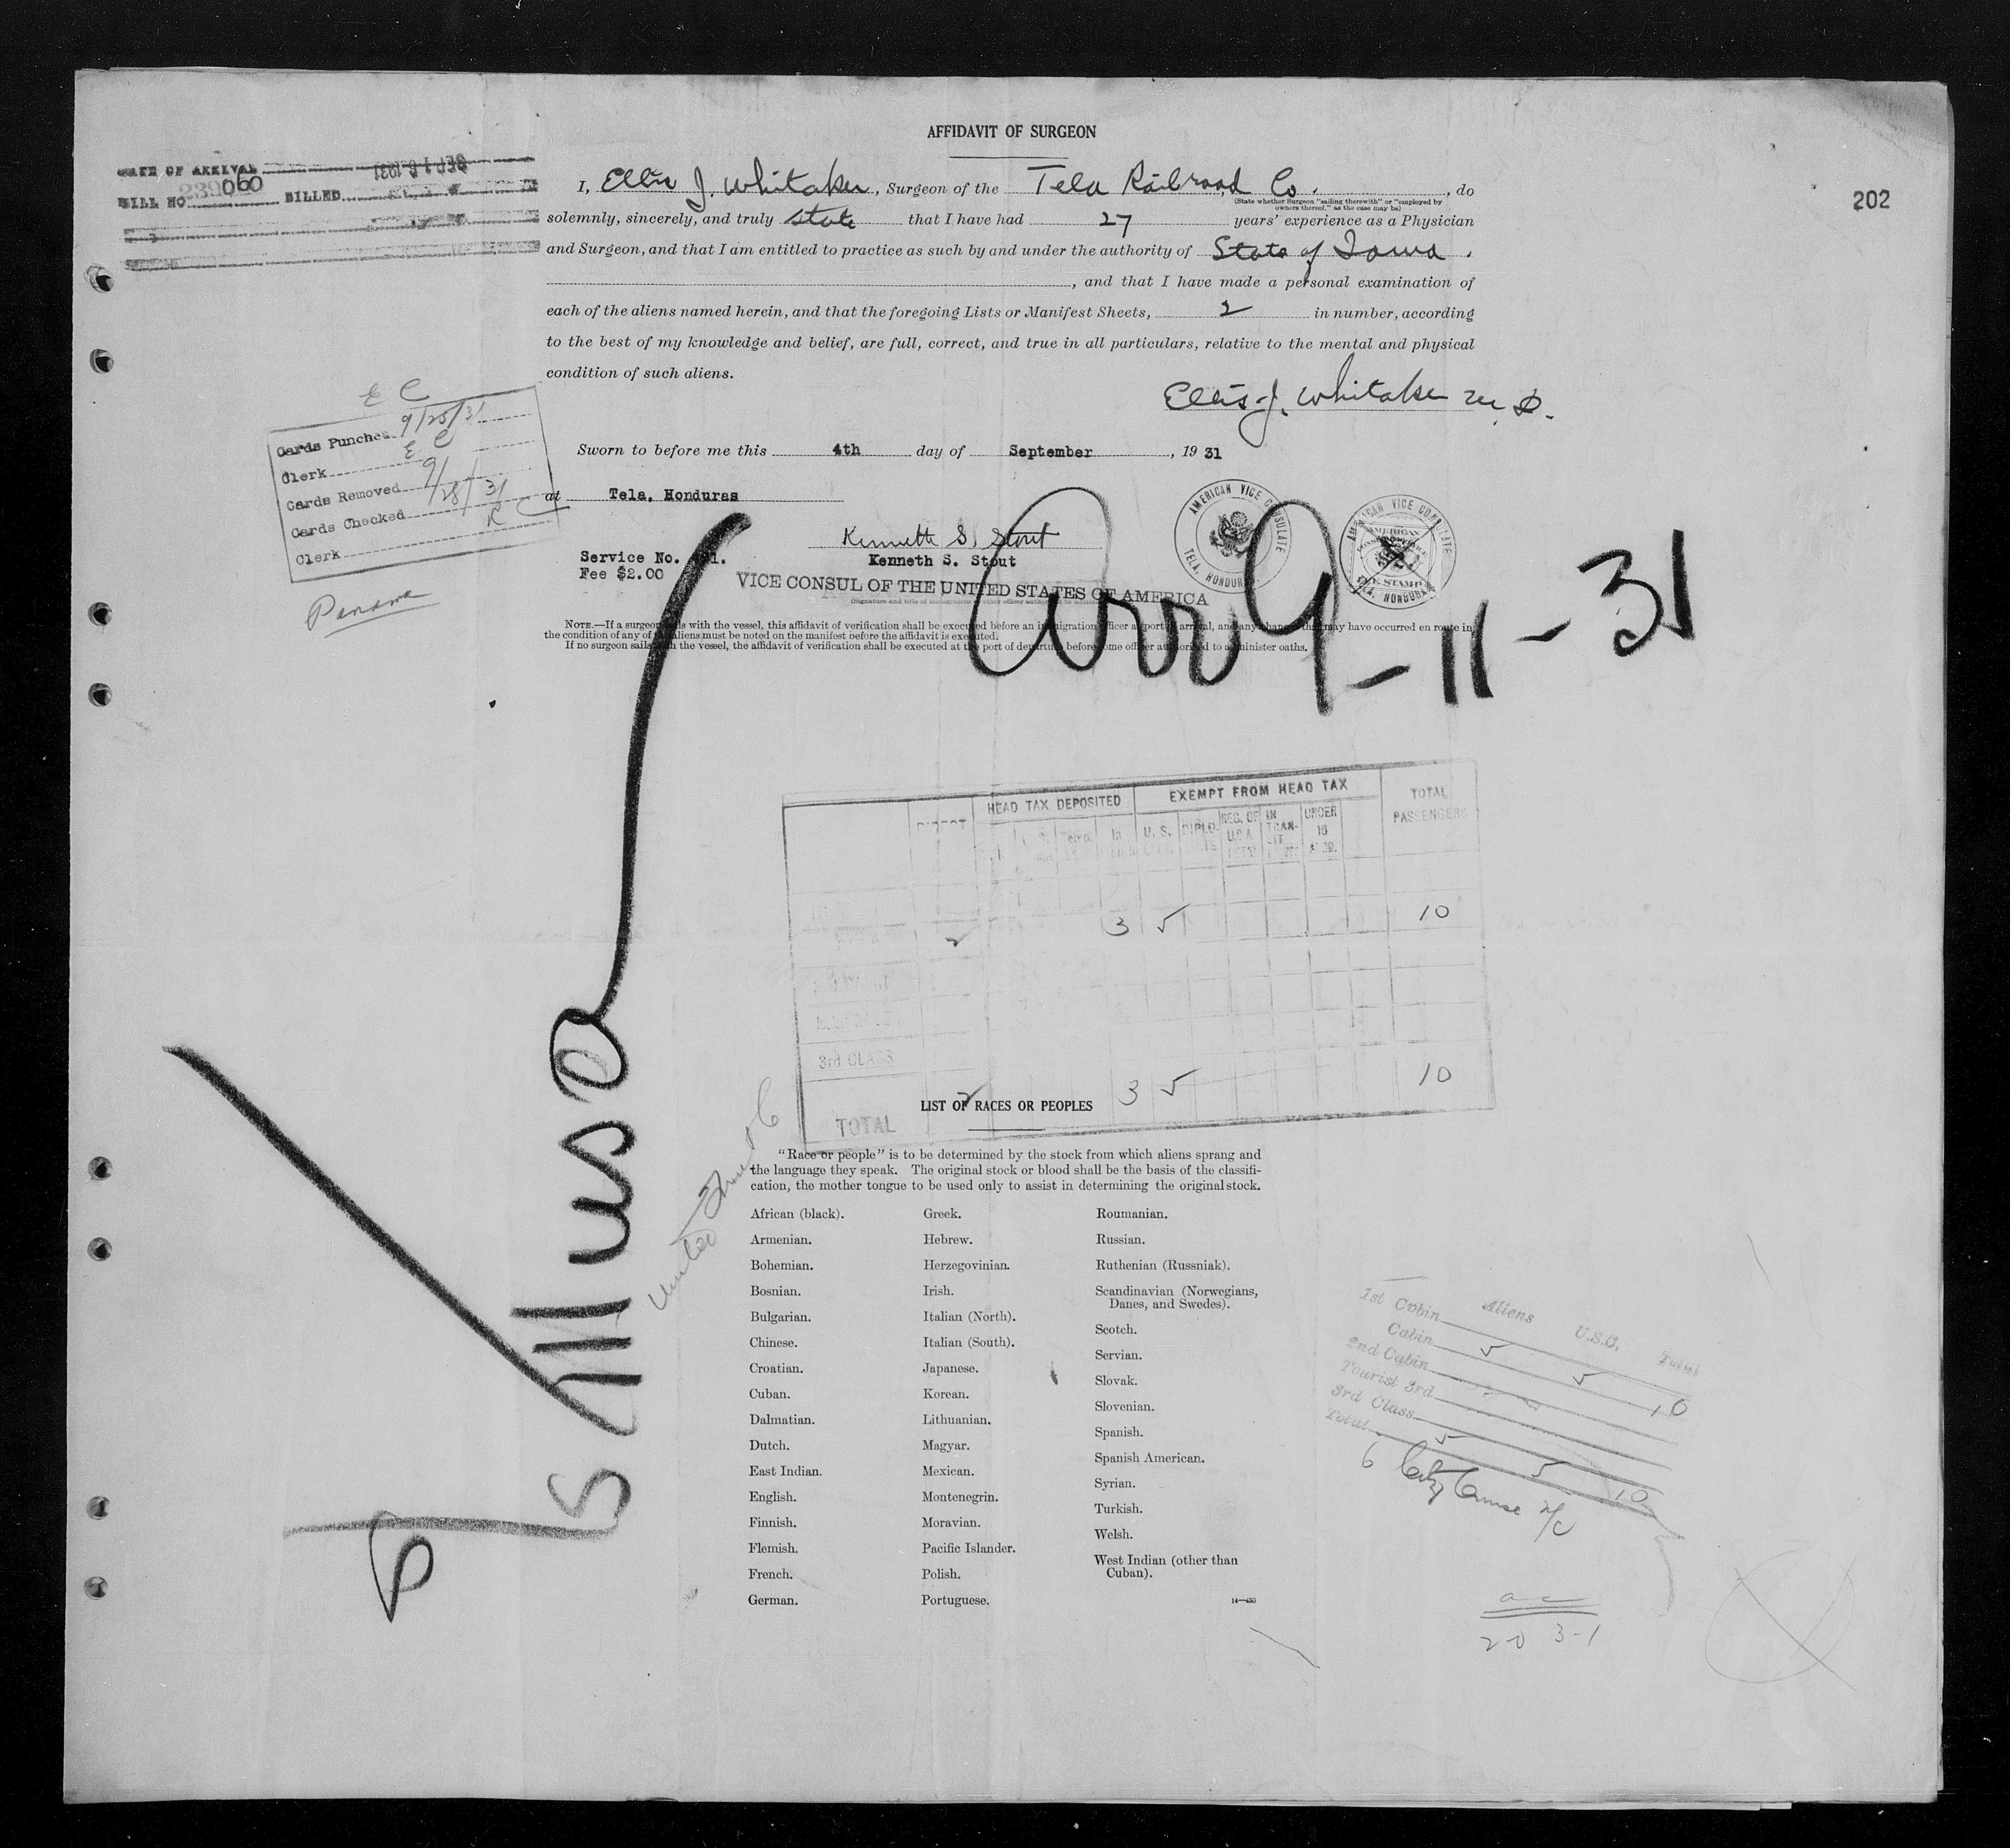 AFFIDAVIT OF SURGEON
202
DATE OF ARRIVAL SEP 1 6 1931
BILL NO. 239060 BILLED
I, Ellis J. Whitaker, Surgeon of the Tela Railroad Co. , do
(State whether Surgeon "sailing therewith" or "employed by
owners thereof," as the case may be)
solemnly, sincerely, and truly state that I have had 27 years' experience as a Physician
and Surgeon, and that I am entitled to practice as such by and under the authority of State of Iowa.
, and that I have made a personal examination of
each of the aliens named herein, and that the foregoing Lists or Manifest Sheets, 2 in number, according
to the best of my knowledge and belief, are full, correct, and true in all particulars, relative to the mental and physical
condition of such aliens.
Ellis J. Whitaker M.D.
E C
Cards Punched 9/25/31
Clerk E C
Cards Removed 9/28/31
Cards Checked
Clerk
Panama
Sworn to before me this 4th day of September, 19 31
at Tela, Honduras
Kenneth S. Stout
Service No. 1.
Kenneth S. Stout
Fee $2.00
VICE CONSUL OF THE UNITED STATES OF AMERICA
AMERICAN VICE CONSULATE
TELA, HONDURAS
AMERICAN VICE CONSULATE
TELA, HONDURAS
AMERICAN
FEE STAMP
Arr 9-11-31
NOTE.—If a surgeon sails with the vessel, this affidavit of verification shall be executed before an immigration officer at port of arrival, and any changes that may have occurred en route in
the condition of any of the aliens must be noted on the manifest before the affidavit is executed.
If no surgeon sails with the vessel, the affidavit of verification shall be executed at the port of departure before some officer authorized to administer oaths.
DIRECT
HEAD TAX DEPOSITED
EXEMPT FROM HEAD TAX
TOTAL
PASSENGERS
U. S.
DIPLO-
REG. OF
U.S.A.
IN
TRAN-
SIT
UNDER
16
2 3 5 10
3rd CLASS
TOTAL 2 3 5 10
LIST OF RACES OR PEOPLES
"Race or people" is to be determined by the stock from which aliens sprang and
the language they speak. The original stock or blood shall be the basis of the classifi-
cation, the mother tongue to be used only to assist in determining the original stock.
African (black).
Armenian.
Bohemian.
Bosnian.
Bulgarian.
Chinese.
Croatian.
Cuban.
Dalmatian.
Dutch.
East Indian.
English.
Finnish.
Flemish.
French.
German.
Greek.
Hebrew.
Herzegovinian.
Irish.
Italian (North).
Italian (South).
Japanese.
Korean.
Lithuanian.
Magyar.
Mexican.
Montenegrin.
Moravian.
Pacific Islander.
Polish.
Portuguese.
Roumanian.
Russian.
Ruthenian (Russniak).
Scandinavian (Norwegians,
Danes, and Swedes).
Scotch.
Servian.
Slovak.
Slovenian.
Spanish.
Spanish American.
Syrian.
Turkish.
Welsh.
West Indian (other than
Cuban).
14—430
United Fruit Co
Aliens U.S.C. Total
1st Cabin
Cabin 5 5 10
2nd Cabin
Tourist 3rd
3rd Class
Total 5 5 10